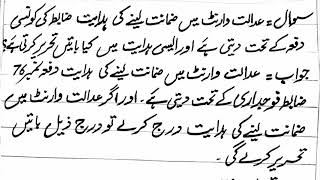 سوال = عدالت وارنٹ میں ضمانت لینے کی ہدایت ضابطے کی کونسی
دفعہ کے تحت دیتی ہے اور ایسی ہدایت میں کیا باتیں تحریر کرتی ہے؟
جواب = عدالت وارنٹ میں ضمانت لینے کی ہدایت دفعہ نمبر 76
ضابطہ فوجداری کے تحت دیتی ہے ۔ اور اگر عدالت وارنٹ میں
ضمانت لینے کی ہدایت درج کرے تو درج ذیل باتیں
تحریر کرے گی ۔